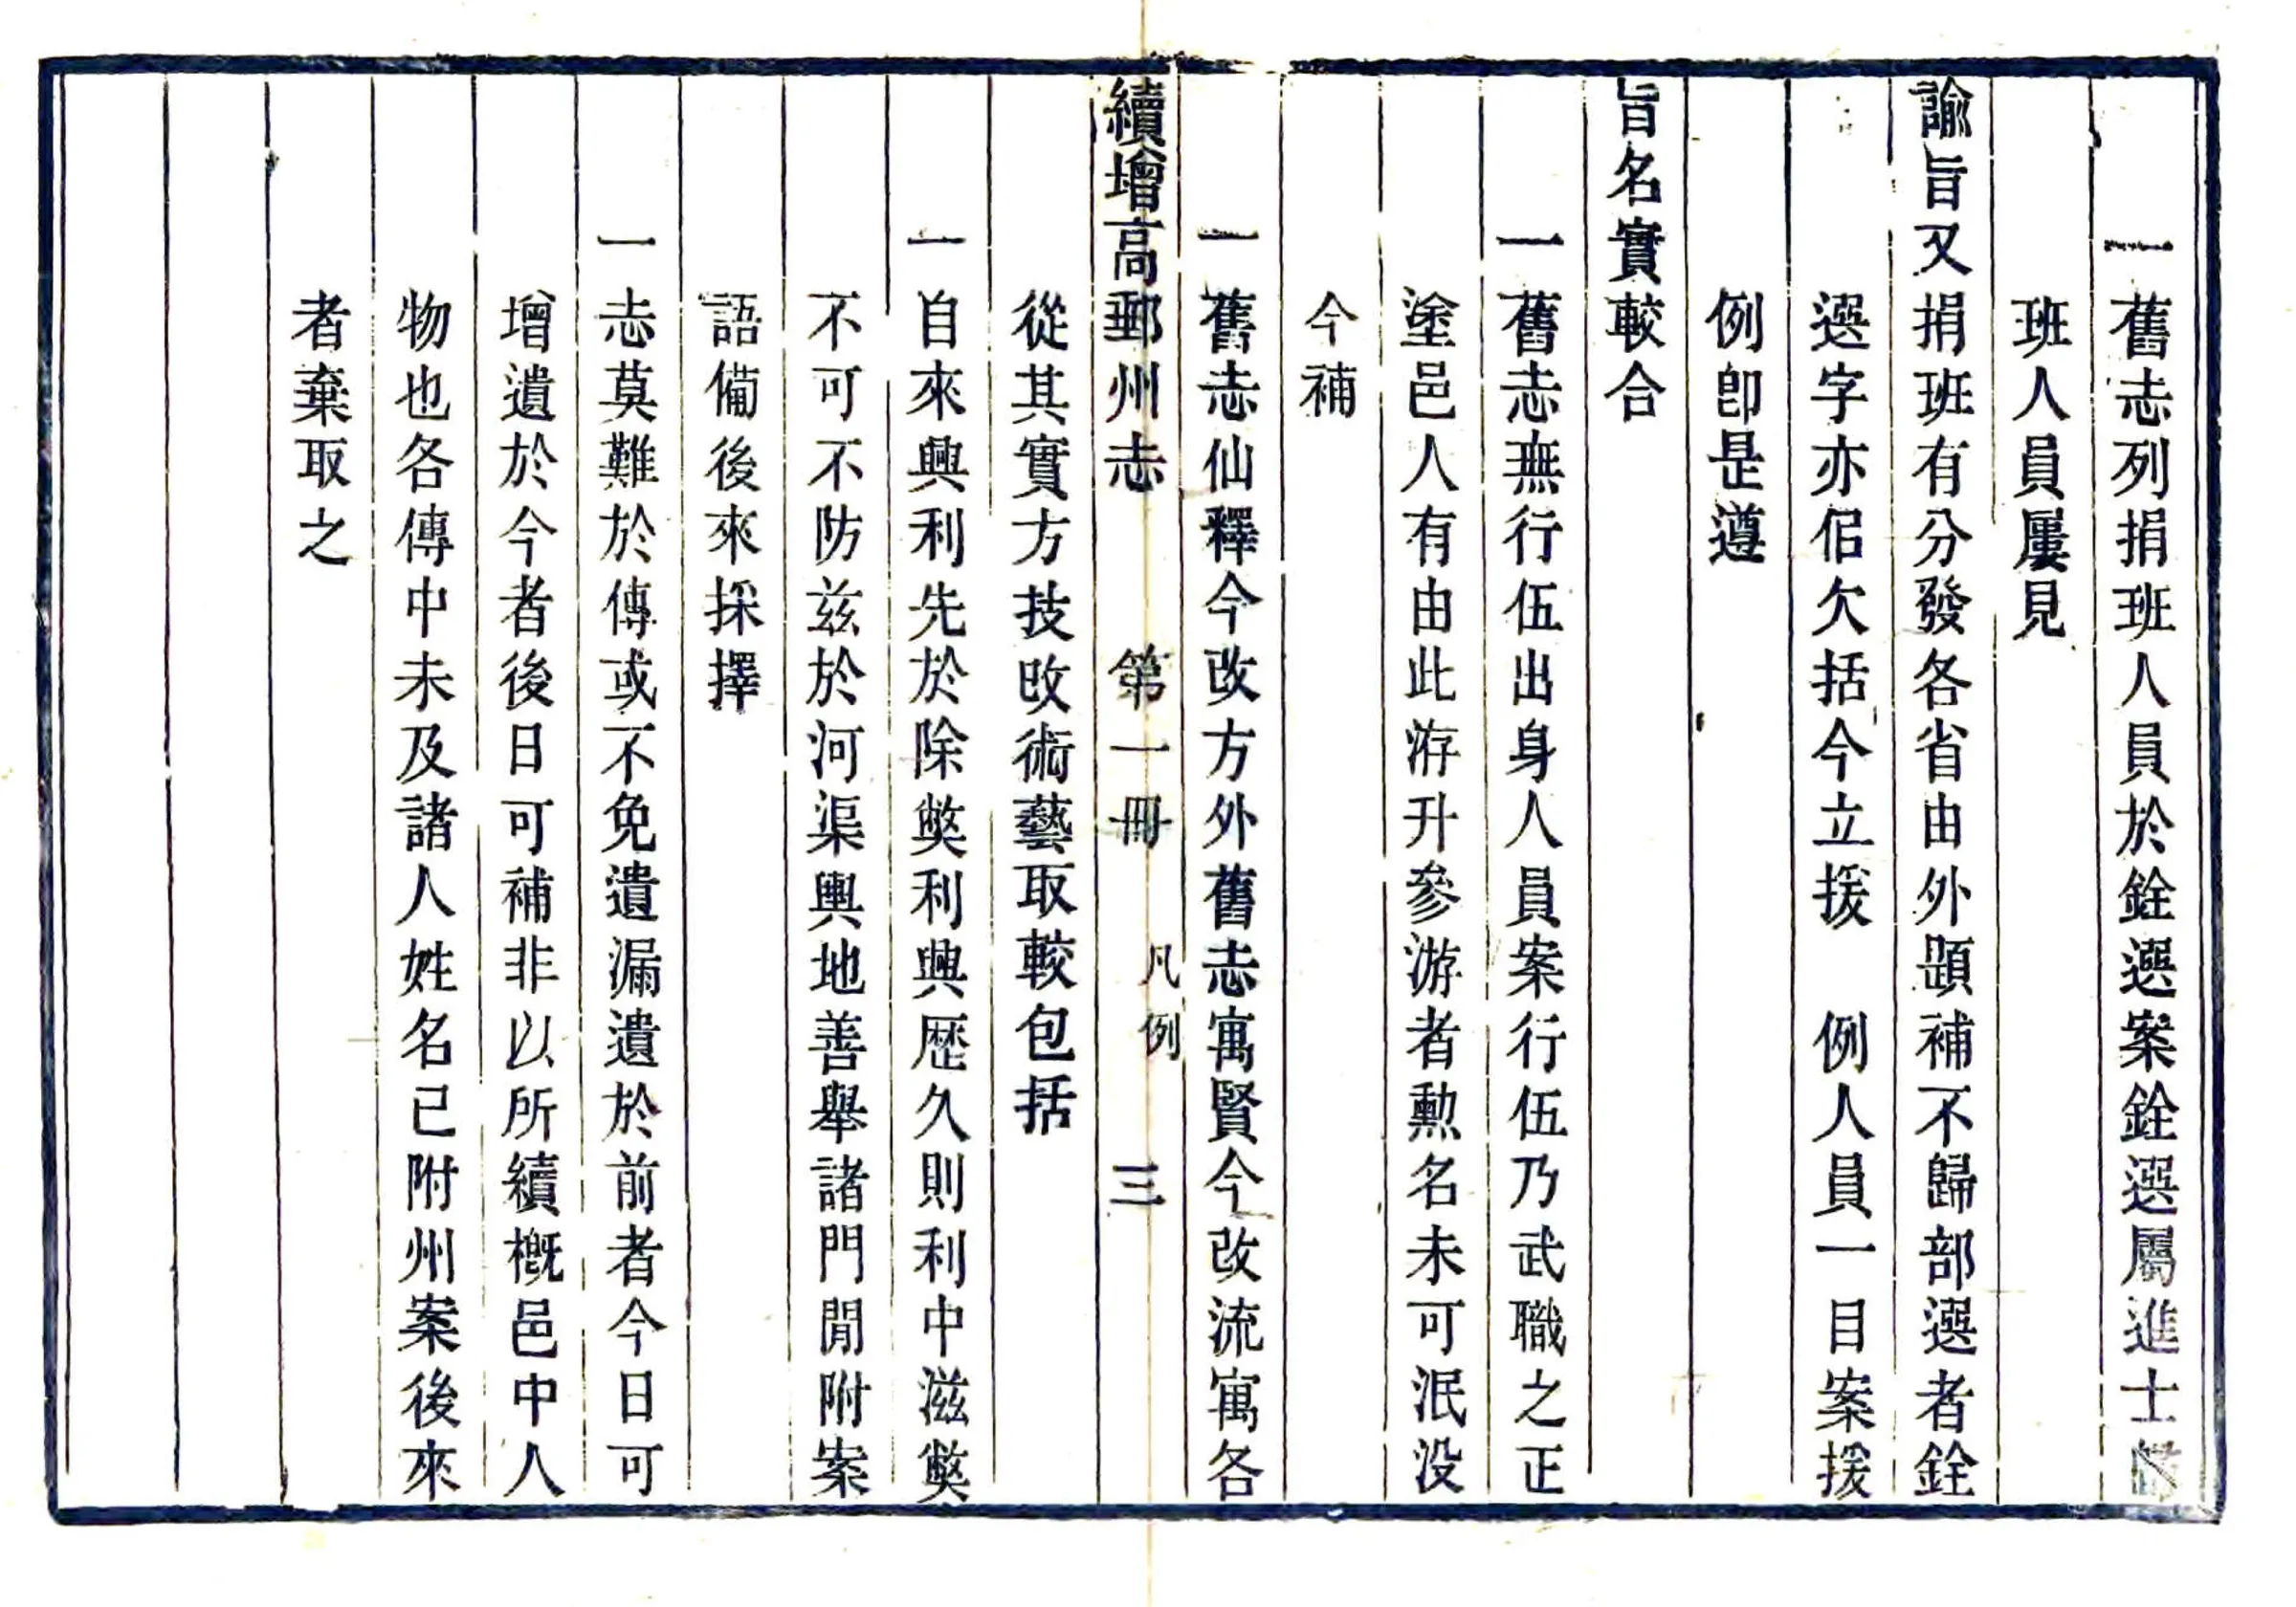 一舊志列捐班人員於銓選案銓選屬進士
班人員屢見
諭旨又捐班有分發各省由外題補不歸部選者銓
選字亦侣欠括今立援　例人員一目案援
例卽是遵
旨名實較合
一舊志無行伍出身人員案行伍乃武職之正
塗邑人有由此洊升參游者勲名未可泯没
今補
一舊志仙釋今改方外舊志寓賢今改流寓各
續增高郵州志　第一冊　凡例　三
從其實方技改術藝取較包括
一自來興利先於除獘利興歷久則利中滋獘
不可不防兹於河渠輿地善舉諸門閒附案
語備後來採擇
一志莫難於傳或不免遺漏遺於前者今日可
增遺於今者後日可補非以所續槪邑中人
物也各傳中未及諸人姓名已附州案後來
者棄取之